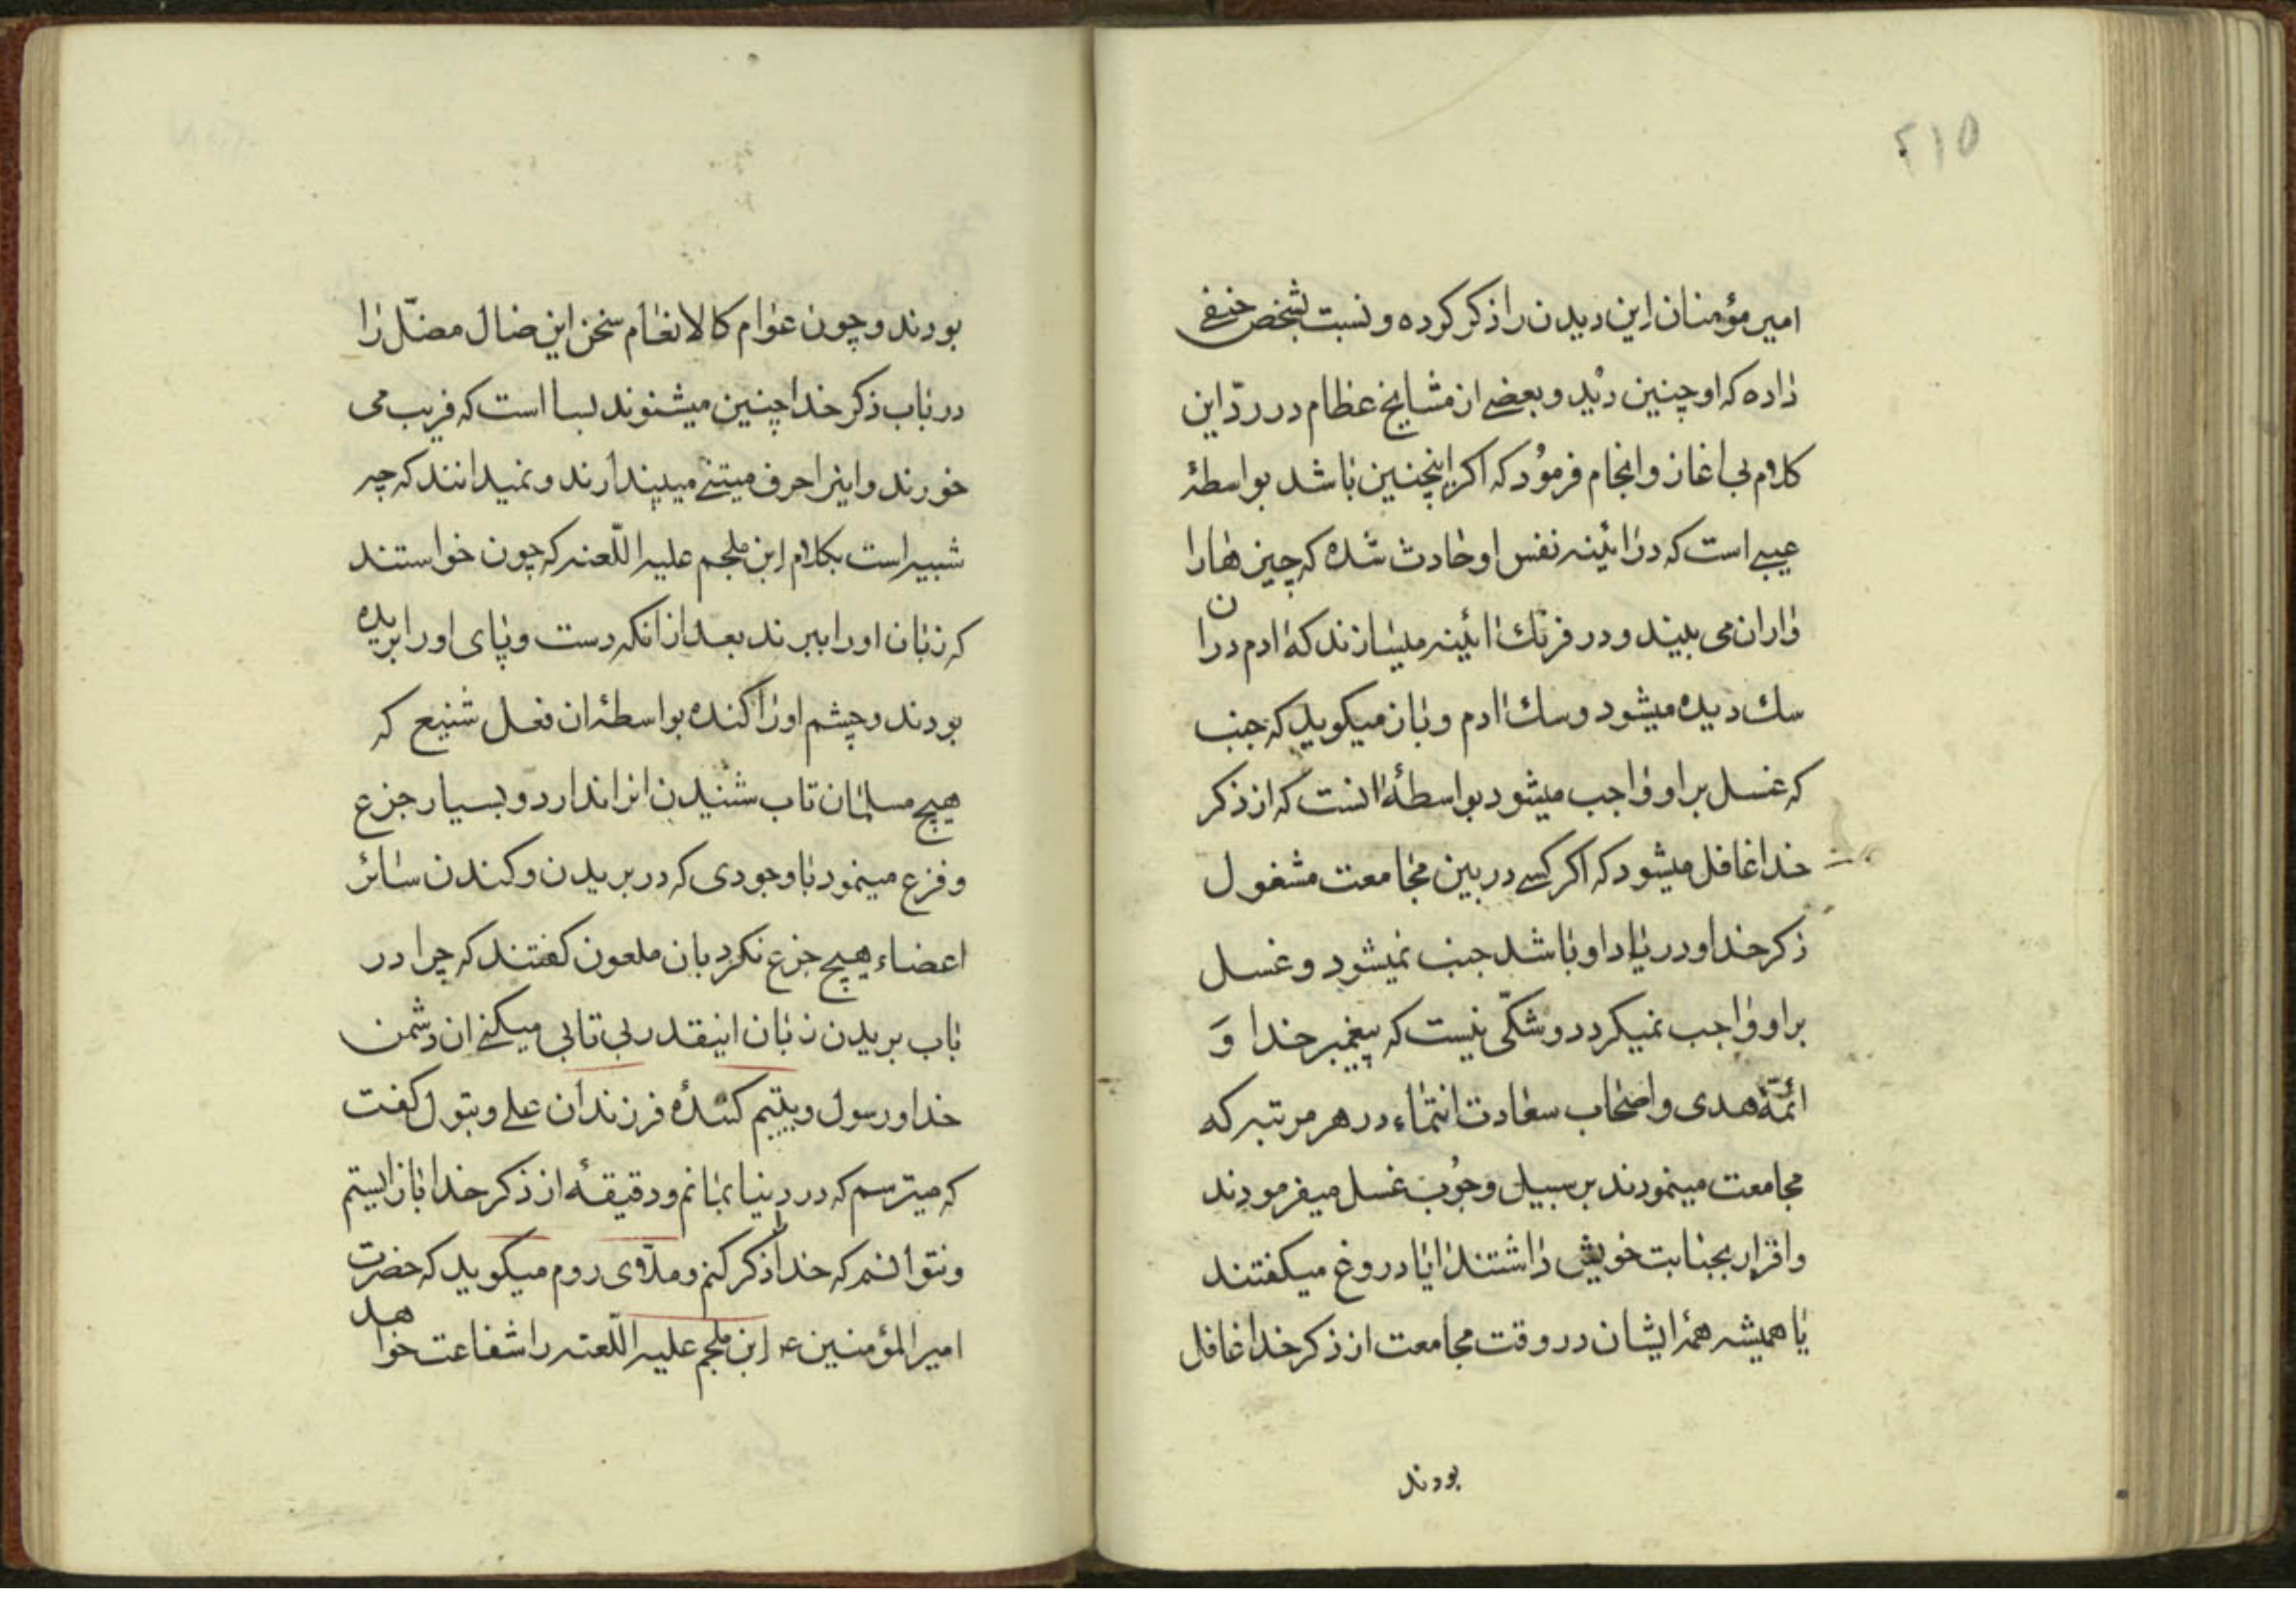 ۲۱۵
امیر مؤمنان این دیدن را ذکر کرده و نسبت بشخص حنفی
داده که او چنین دید و بعضی از مشایخ عظام در ردّ این
کلام بی اغاز و انجام فرمود که اکر اینچنین باشد بواسطهٔ
عیبی است که در ائینه نفس او حادث شده که چیزها را
واران می بیند و در فرنك ائینه میسازند که ادم دران
سك دیده میشود و سك ادم و باز میکوید که جنب
که غسل بر او واجب میشود بواسطهٔ انست که از ذکر
خدا غافل میشود که اکر کسی در بین مجامعت مشغول
ذکر خدا و در یاد او باشد جنب نمیشود و غسل
بر او واجب نمیکردد و شکّی نیست که پیغمبر خدا وَ
ائمّهٔ هدی و اصحاب سعادت انتماء در هر مرتبه که
مجامعت مینمودند بر سبیل وجُوب غسل میفرمودند
و اقرار بجنابت خویش داشتند ایا دروغ میکفتند
یا همیشه همهٔ ایشان در وقت مجامعت از ذکر خدا غافل
بودند
بودند و چون عوام کالانعام سخن این ضال مضلّ را
در باب ذکر خدا چنین میشنوند بسا است که فریب می
خورند و اینرا حرف متینی میپندارند و نمیدانند که چه
شبیه است بکلام ابن ملجم علیه اللّعنه که چون خواستند
که زبان او را ببرند بعد از انکه دست و پای او را بریده
بودند و چشم او را کنده بواسطهٔ ان فعل شنیع که
هیچ مسلمان تاب شنیدن انرا ندارد و بسیار جزع
و فزع مینمود با وجودی که در بریدن و کندن سائر
اعضاء هیچ جزع نکرد بان ملعون کفتند که چرا در
باب بریدن زبان اینقدر بی تابی میکنی ان دشمن
خدا و رسول و یتیم کنندهٔ فرزندان علی و بتول کفت
که میترسم که در دنیا بمانم و دقیقهٔ از ذکر خدا باز ایستم
و نتوانم که خدا را ذکر کنم و ملّای روم میکوید که حضرت
امیر المؤمنین ع ابن ملجم علیه اللّعنه را شفاعت خواهد